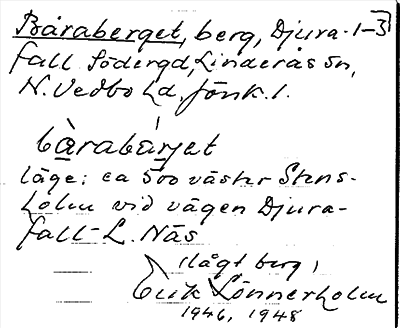 Båraberget, berg, Djura-1-3
fall Södergd, Linderås sn,
N. Vedbo hd, Jönk. l.
bàrabàrjet
läge: ca 500 väster Stens-
holm vid vägen Djura-
fall-L. Näs
(lågt berg)
Erik Lönnerholm
1946, 1948